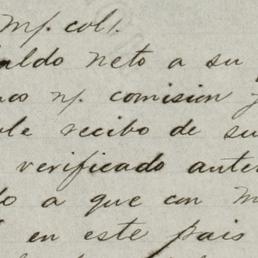 m/. col/.
aldo neto a su
co n/. comision
le recibo de su
verificado anter
o a que con m
en este pais